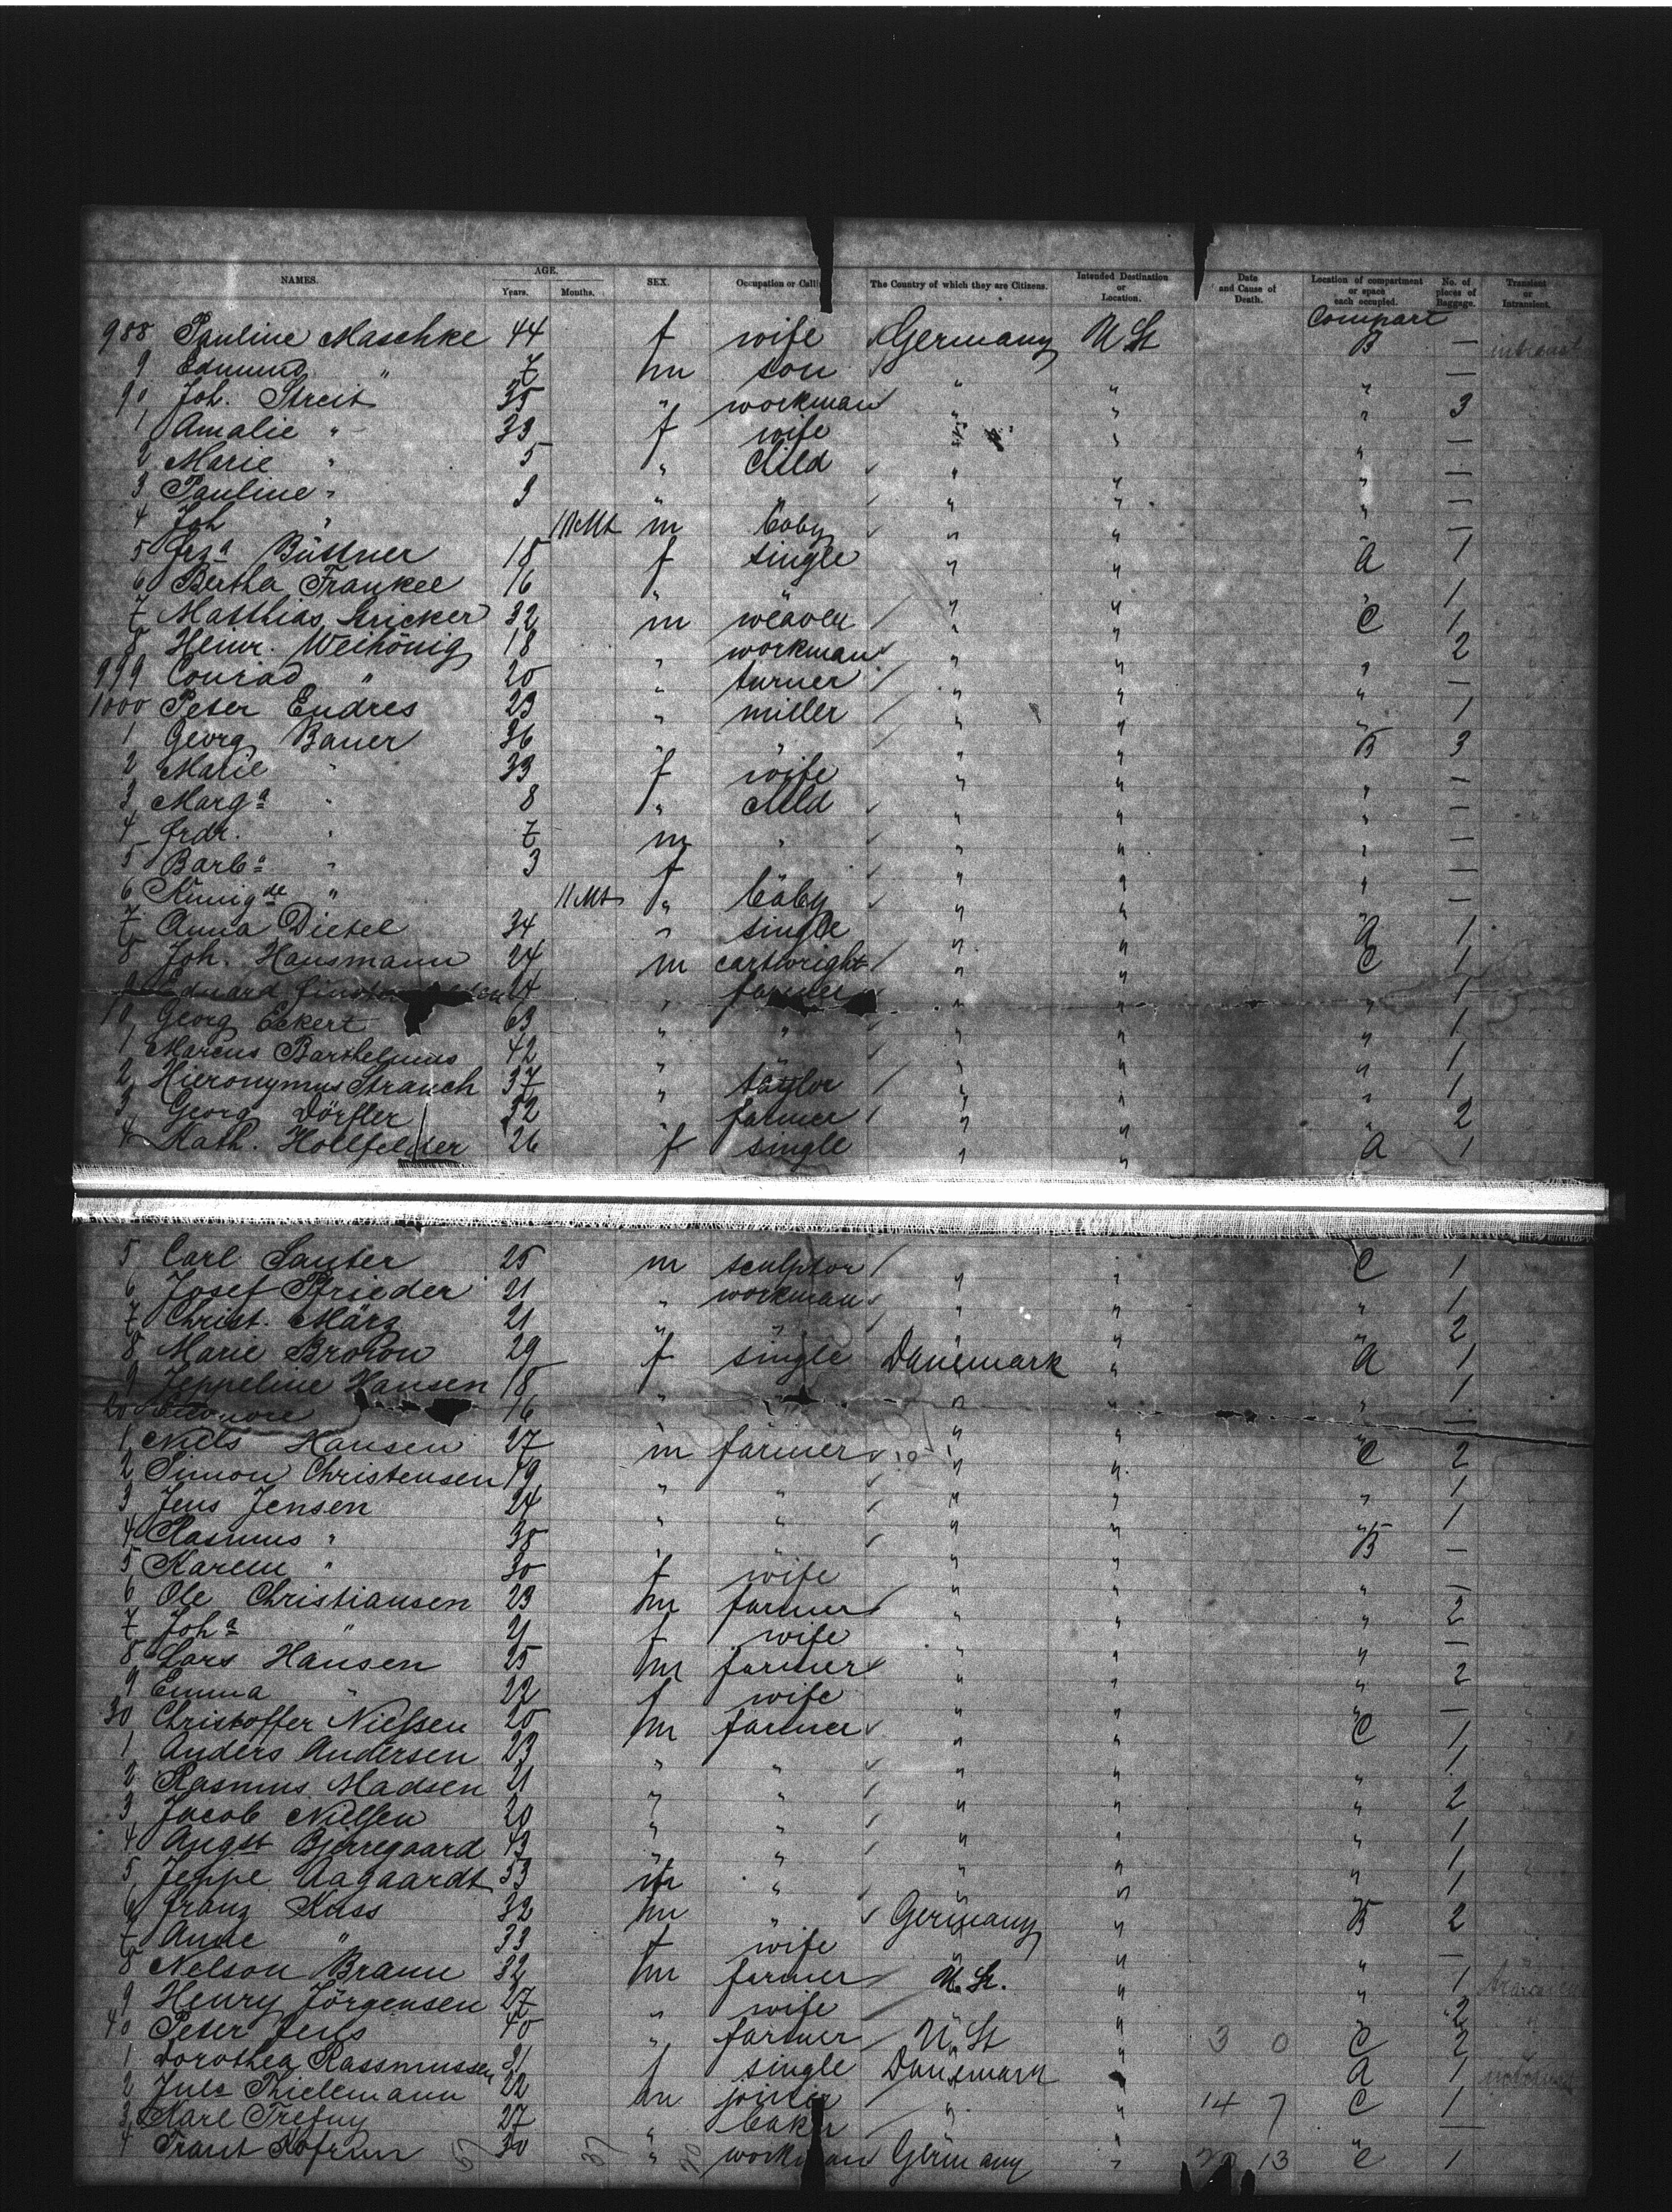 NAMES. AGE. Years. Months. SEX. Occupation or Calli The Country of which they are Citizens. Intended Destination or Location. Date and Cause of Death. Location of compartment or space each occupied. No. of pieces of Baggage. Transient or Intransient.
Compart
988 Pauline Maschke 44 f wife Germany U St B —
9 Edmund " 7 m son " " " —
90 Joh. Streit 35 " workman " " " 3
1 Amalie " 33 f wife " " " —
2 Marie " 5 " child " " " —
3 Pauline " " " " " —
4 Joh " 11 Mt m baby " " " —
5 Frza Büttner 18 f single " " A 1
6 Bertha Frankel 16 " " " " " 1
7 Matthias Stricker 32 m weaver " " C 1
8 Heinr. Weihönig 18 " workman " " " 2
999 Conrad " 20 " turner " " " —
1000 Peter Endres 23 " miller " " " 1
1 Georg Bauer 36 " " " " B 3
2 Marie " 33 f wife " " " —
3 Marga " 8 " child " " " —
4 Frdr. " 7 m " " " " —
5 Barba " 3 f " " " —
6 Kunigde " 11 Mt " baby " " " —
7 Anna Dietel 34 " single " " A 1
8 Joh. Hausmann 24 m cartwright " " C 1
9 Eduard 24 " farmer " " " 1
10 Georg Eckert 63 " " " " " 1
1 Marcus Barthelmus 42 " " " " 1
2 Hieronymus Strauch 37 " taylor " " " 1
3 Georg Dörfler 52 " farmer " " " 2
4 Kath. Hollfelder 26 f single " " A 1
5 Carl Sauter 25 m sculptor " " C 1
6 Josef Pfrieder 21 " workman " " " 1
7 Christ. März 21 " " " " " 2
8 Marie Brown 29 f single Danemark " A 1
9 Jeppeline Hansen 18 " " " " " 1
20 Eleonore 16 " " " —
1 Niels Hansen 27 m farmer " " C 2
2 Simon Christensen 19 " " " " " 1
3 Jens Jensen 24 " " " " " 1
4 Rasmus " 38 " " " " B —
5 Karen " 30 f wife " " " —
6 Ole Christiansen 23 m farmer " " " 2
7 Joha " 21 f wife " " " —
8 Lars Hansen 25 m farmer " " " 2
9 Emma " 22 f wife " " " —
30 Christoffer Nielsen 20 m farmer " " C 1
1 Anders Andersen 23 " " " " " 1
2 Rasmus Madsen 21 " " " " " 2
3 Jacob Nielsen 20 " " " " " 1
4 Augst Bjerregaard 43 " " " " " 1
5 Jeppe Aagaardt 53 m " " " " 1
6 Franz Kass 32 m " Germany " B 2
7 Anne " 33 f wife " " " —
8 Nelson Braun 32 m farmer U. St. " " 1
9 Henry Jörgensen 27 " wife " " 2
40 Peter 40 " farmer U St " 3 0 C 2
1 Dorothea Rassmussen 21 f single Danemark " A 1
2 Juls Thielemann 22 m joiner " " 14 7 C 1
3 Karl Trefny 27 " baker " " —
4 30 " workman Germany " 13 C 1